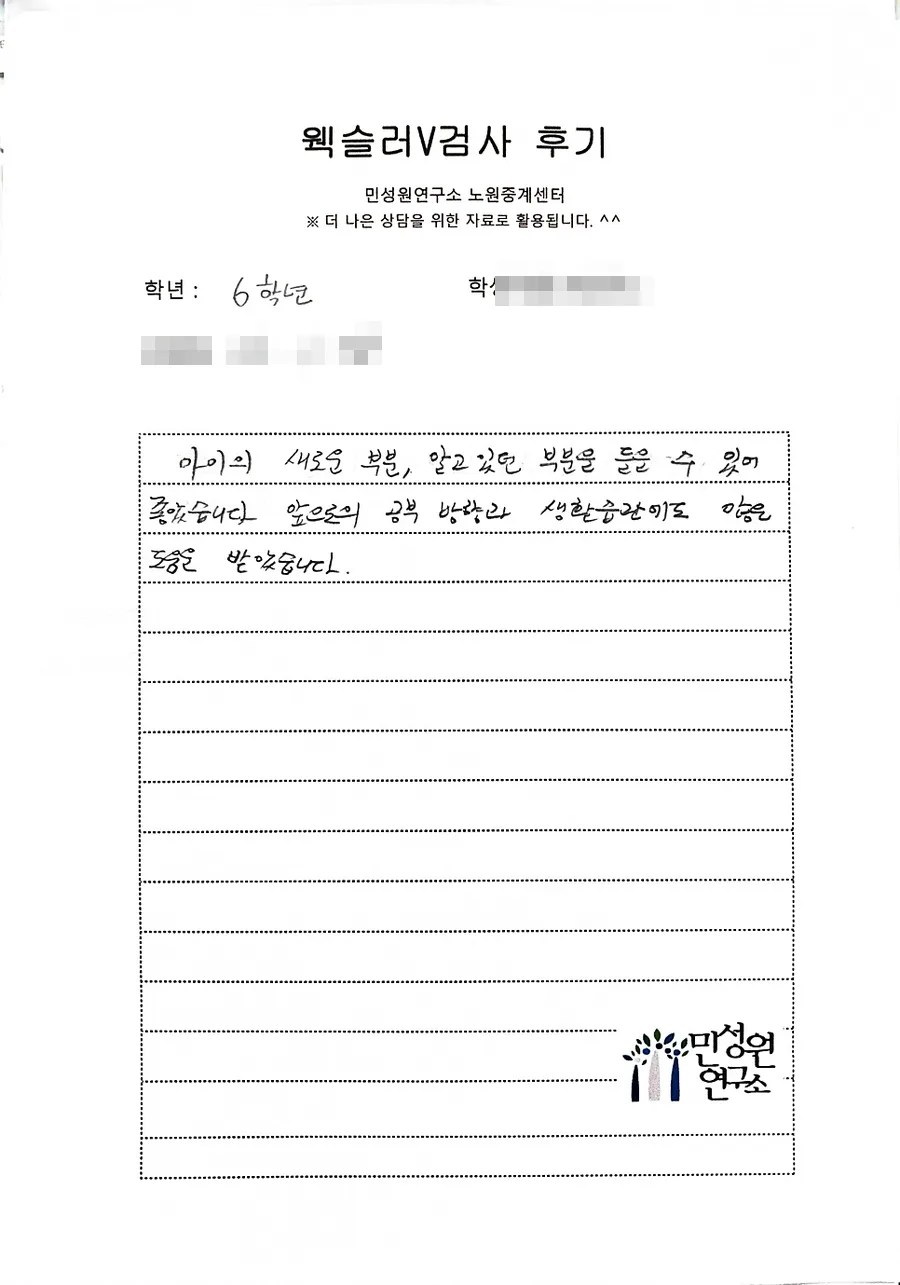 웩슬러V검사 후기
민성원연구소 노원중계센터
※ 더 나은 상담을 위한 자료로 활용됩니다. ^^
학년 : 6학년
학생
아이의 새로운 부분, 알고 있던 부분을 들을 수 있어
좋았습니다 앞으로의 공부 방향과 생활습관에도 많은
도움을 받았습니다.
민성원
연구소